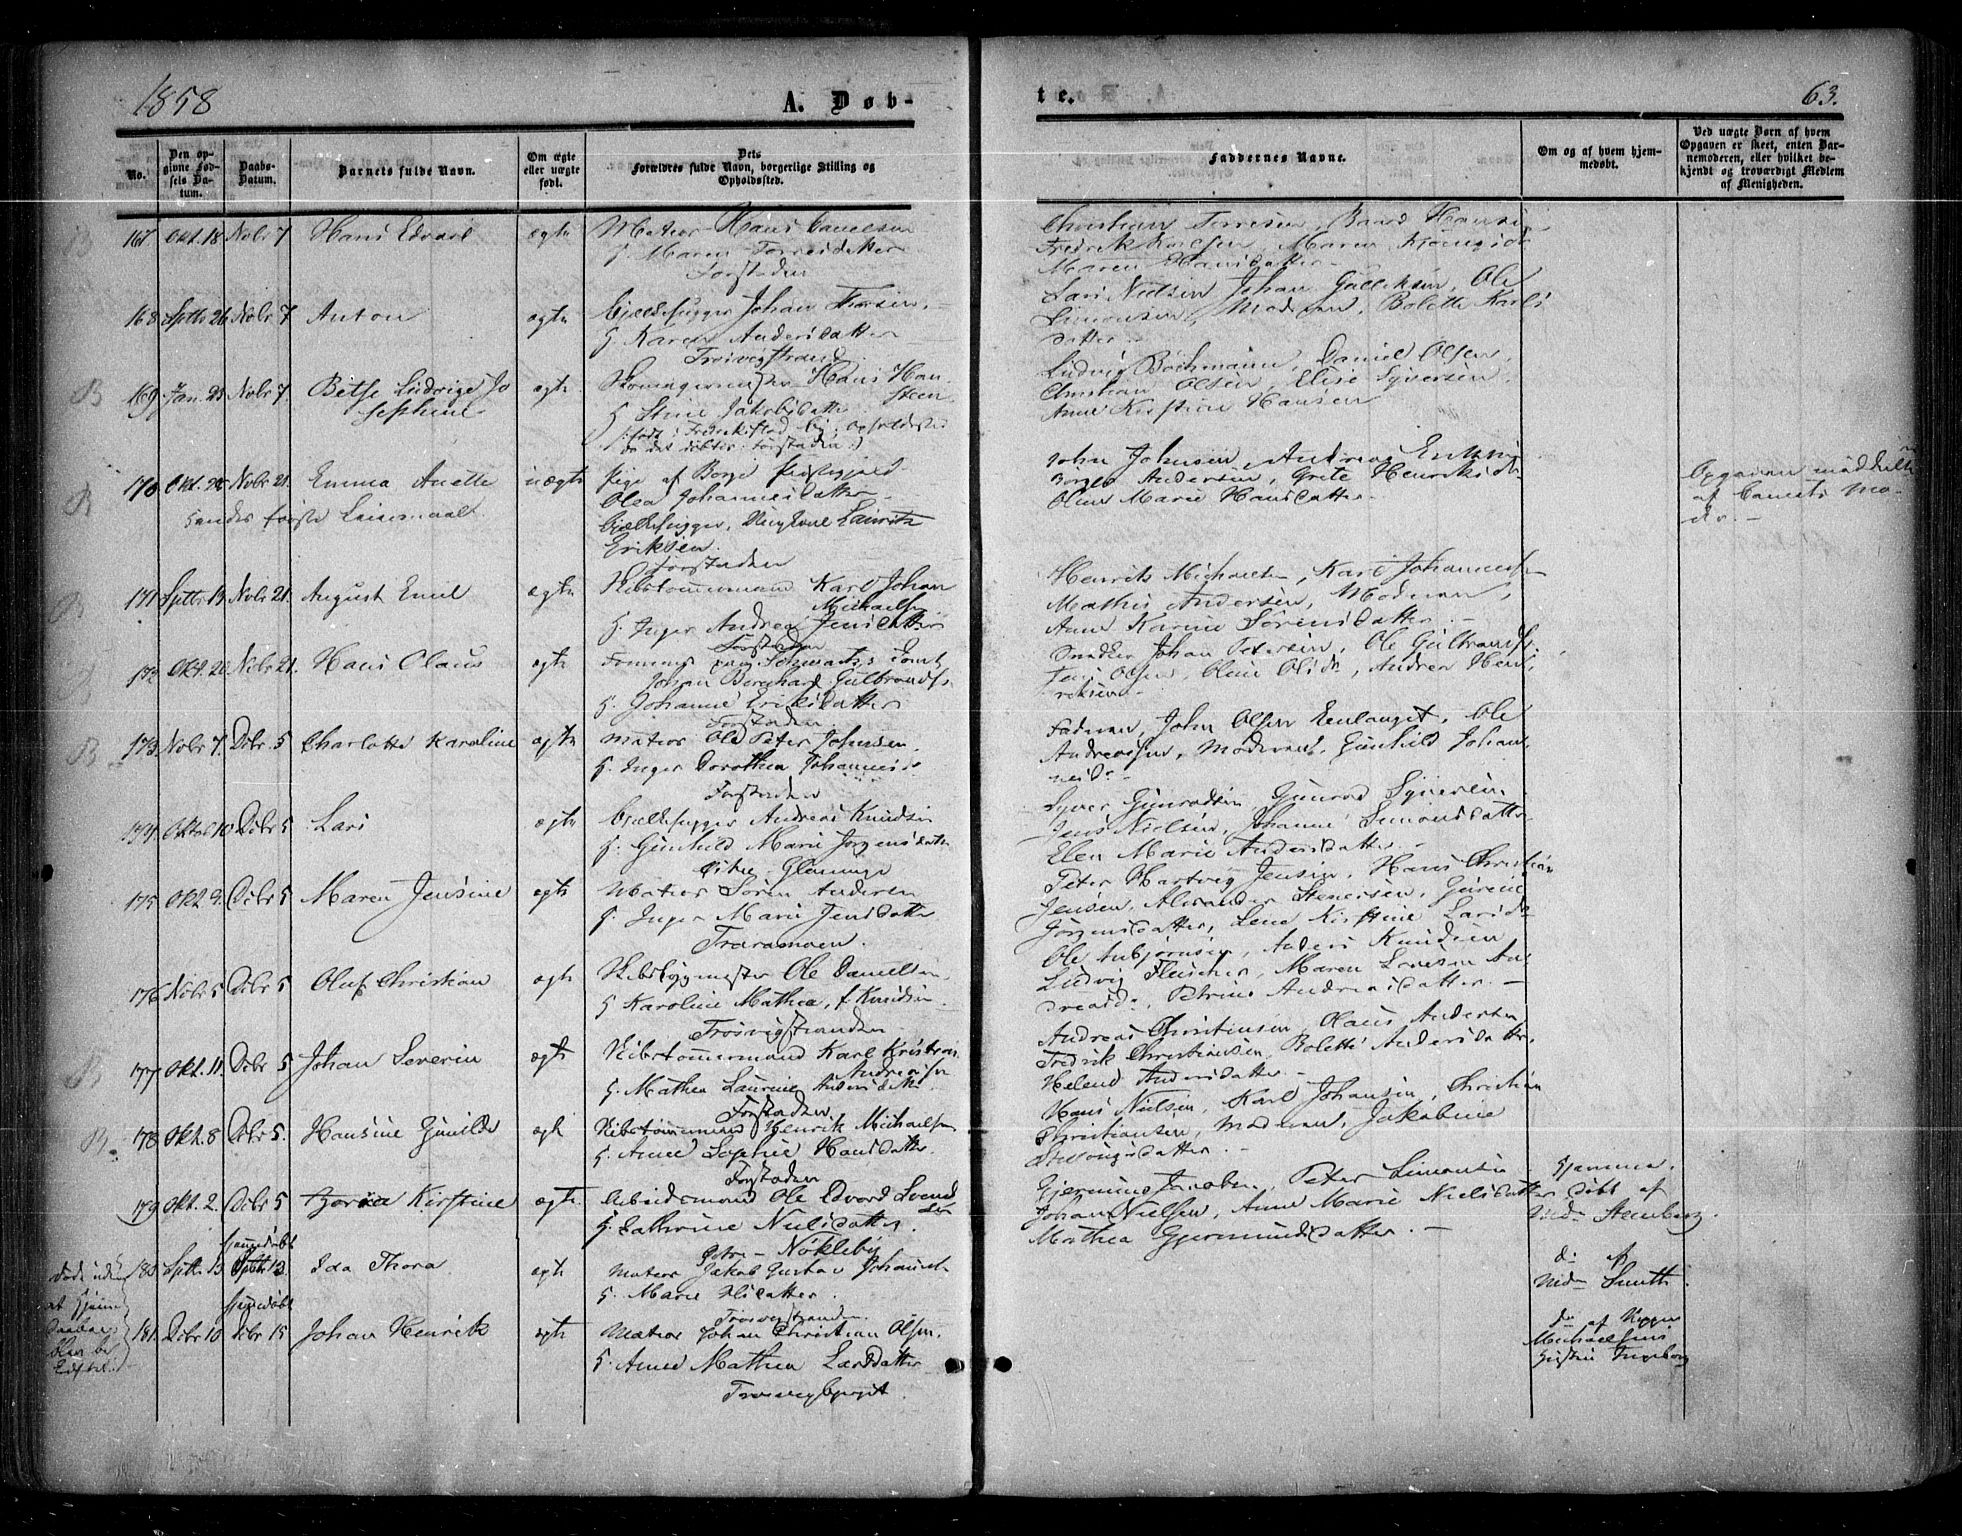 1858
A. Døb-
te.
63.
No.
Den opgivne Fødsels Datum.
Daabs-Datum.
Barnets fulde Navn.
Om ægte eller uægte født.
Dets Forældres fulde Navn, borgerlige Stilling og Opholdssted.
Faddernes Navne.
Om og af hvem hjemmedøbt.
Ved uægte Børn af hvem Opgaven er skeet, enten Barnemoderen, eller hvilket bekjendt og troværdigt Medlem af Menigheden.
167 Okt. 18 Novbr 7 Hans Edvard ægte Matros Hans Danielsen
H. Maren Torresdatter
Forstaden
Christian Torresen, Baard Hansen
Fredrik Karlsen, Maren
Maren Hansdatter
168 Septbr 26 Novbr 7 Anton ægte Bjælkehugger Johan
H. Karen Andersdatter
Trosvigstrand
Lars Nielsen, Johan Gulliksen, Ole
Simonsen, Moderen, Bolette Karls
datter
169 Jan. 23 Novbr 7. Betse Ludvige Jo ægte Skomagermester Hans Han
sephine steen
H. Stine Jakobsdatter
(: født i Fredrikstad By; opholdt sig
da det døbtes i Forstaden :)
Ludvig Bochmann, Daniel Olsen,
Christian Olsen, Elise Syversen,
Anne Kirstine Hansen
170 Okt. Novbr 21. Emma Anette uægte Pige af Borge Præstegjeld
hendes første Leiermaal. Olea Johannesdatter
Bjælkehugger, Ungkarl Lauritz
Eriksen.
Forstaden
John Johnsen, Andreas
Borger Andersen, Grete Henriksd.
Oline Marie Hansdatter.
Opgaven meddelt
af Barnets Mo
der.
171 Septbr 19 Novbr 21. August Emil ægte Skibstømmermand Karl Johan
Michaelsen
H. Inger Andrea Jensdatter
Forstaden
Henrik Michaelsen, Karl Johannessen
Mathis Andersen, Moderen,
Anne Karine Sørensdatter.
172 Okt. 20 Novbr 21. Hans Olaus ægte
Johan Bernhard Gulbrands.
H. Johanne Eriksdatter
Forstaden.
Snedker Johan Petersen, Ole Gulbrands.
Jens Olsen, Oline Olsd., Andrea Hen
riksen
173. Novbr 7. Dcbr. 5 Charlotte Karoline ægte Matros Ole Peter Johnsen.
H. Inger Dorothea Johannesd.
Forstaden
Faderen, John Olsen Eenlanget, Ole
Andreassen, Moderen, Gunhild Johan
nesd.
174 Oktobr 10 Dcbr 5 Lars ægte Bjælkehugger Andreas Knudsen
H. Gunhild Marie Jørgensdatter
Østre Glemminge
Syver Gunrodsen, Gunrod Syversen
Jens Nielsen, Johanne Simonsdatter
Elen Marie Andersdatter.
175 Okt. 9. Dcbr 5 Maren Jensine ægte Matros Søren Andersen
H. Inger Marie Jensdatter
Traramoen.
Peter Hartvig Jensen, Hans Christian
Jensen, Alexander Stenersen, Gurine
Jørgensdatter, Lene Kirstine Larsd.
176 Novbr 5 Dcbr 5 Oluf Christian ægte Skibsbygmester Ole Danielsen
H. Karoline Mathea, f. Knudsen
Trosvigstranden
Ole Anbjørnsen, Anders Knudsen
Ludvig Fleischer, Maren Lovise An
dreasd., Petrine Andreasdatter.
177 Okt. 11. Dcbr 5 Johan Severin ægte Skibstømmermand Karl Kristian
Andreasen
H. Mathea Laurine Andersdatter
Forstaden
Andreas Christiansen, Olaus Andersen
Fredrik Christiansen, Bolette Andersdatter,
Helene Andersdatter.
178 Okt. 8. Dcbr 5. Hansine Gunilde ægte Skibstømmermand Henrik Michaelsen
H. Anne Sophie Hansdatter.
Forstaden
Hans Nielsen, Karl Johansen, Christian
Christiansen, Moderen, Jakobine
179 Okt. 2. Dcbr 5 Kirstine ægte Arbeidsmand Ole Edvard Svend
sen
H. Cathrine Nielsdatter.
Østre Nøkleby
Jacobsen, Peter Simonsen
Johan Nielsen, Anne Marie Nielsdatter
Mathea Gjermundsdatter.
Hjemme
døbt af
Stenberg.
hjemmedøbt
180 Septbr 13 Septbr 13. Ida Thora ægte Matros Jakob Gustav Johannes.
H. Marie Olsdatter.
Trosvigstranden
do af
Smith
hjemmedøbt
181. Dcbr 10 Dcbr 15 Johan Henrik ægte Matros Johan Christian Olsen.
H. Anne Mathea Larsdatter
Trosvigberget.
do af
Michaelsens
Ingeborg
døde uden
at Hjemme
daaben
blev be
kræftet.
B